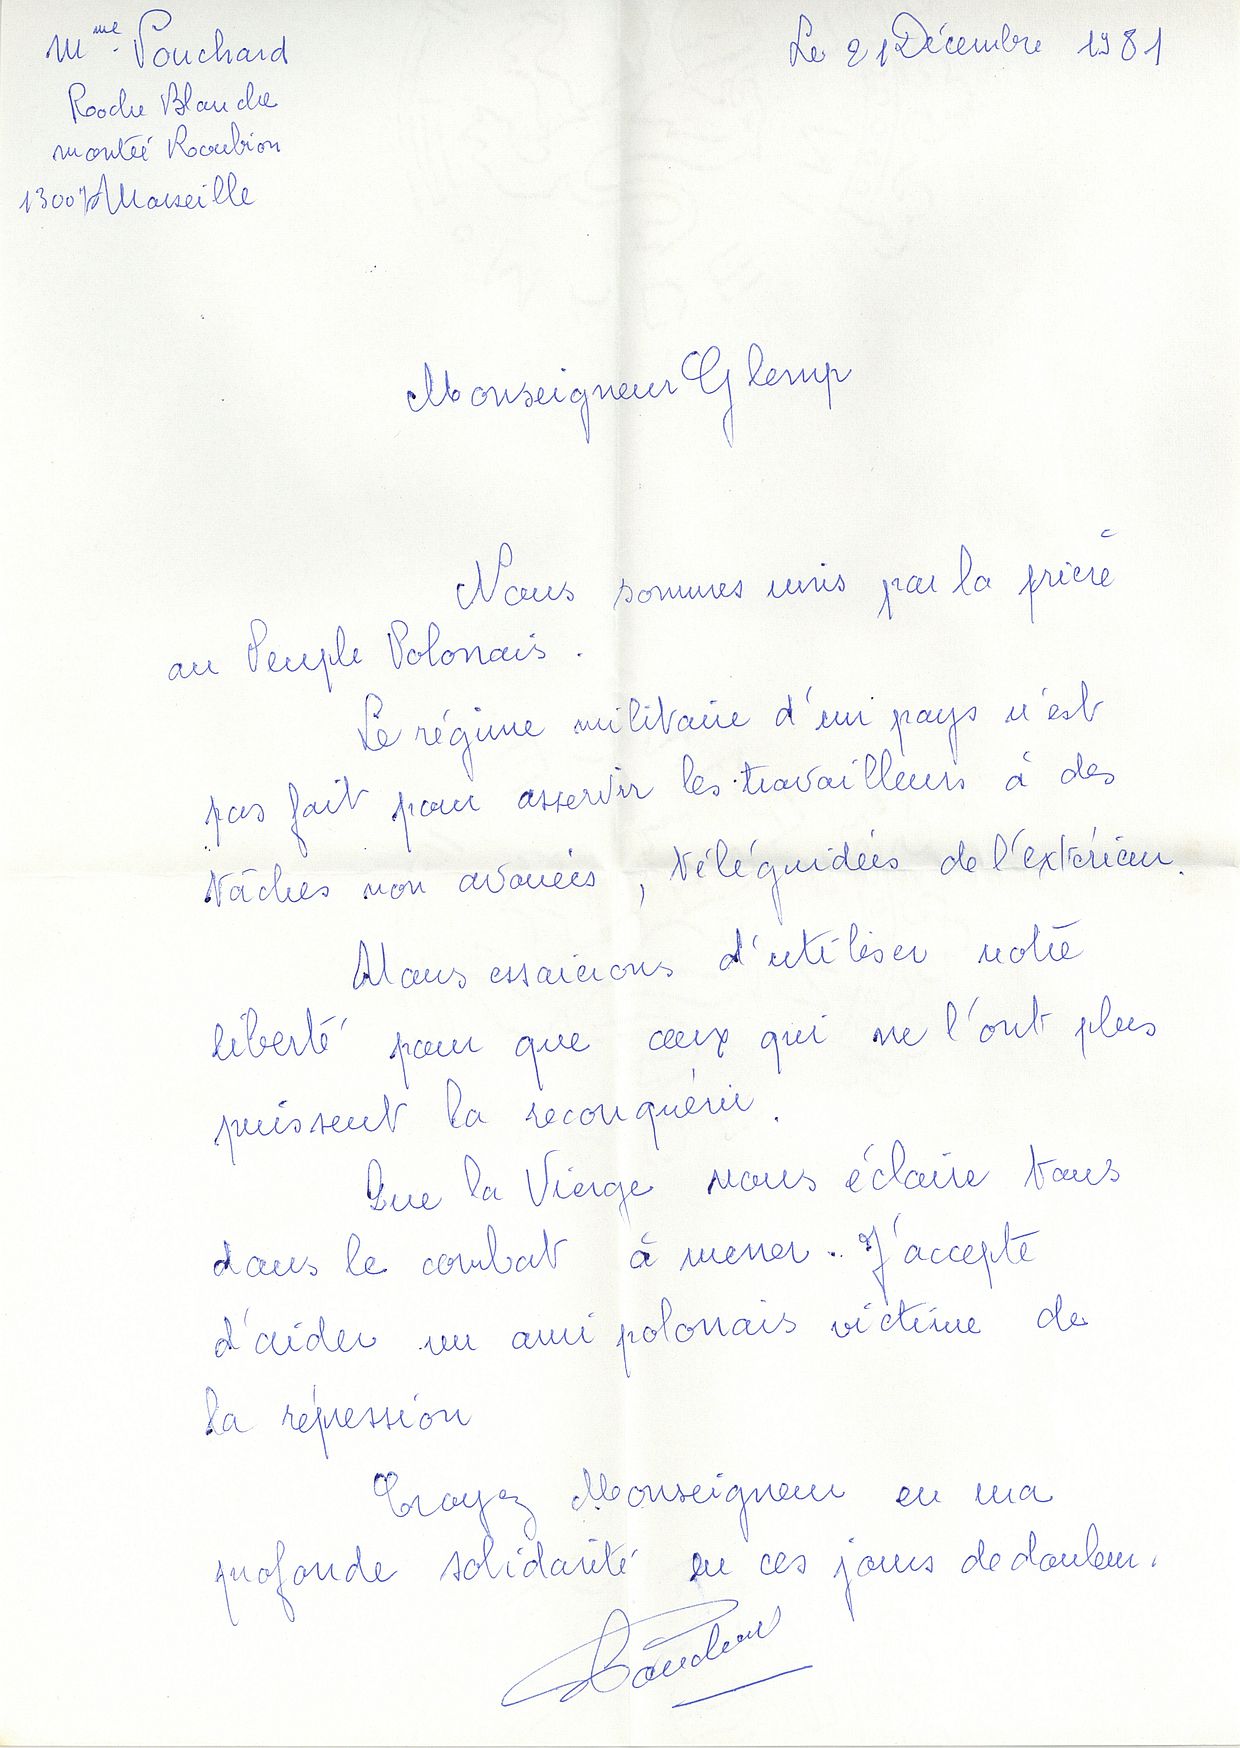 Mme Pouchard
Roche Blanche
montée Roubion
13007 Marseille
Le 21 Décembre 1981
Monseigneur Glemp
Nous sommes unis par la prière
au Peuple Polonais.
Le régime militaire d'un pays n'est
pas fait pour asservir les travailleurs à des
tâches non avouées, téléguidées de l'extérieur.
Nous essaierons d'utiliser notre
liberté pour que ceux qui ne l'ont plus
puissent la reconquérir.
Que la Vierge nous éclaire tous
dans le combat à mener.. J'accepte
d'aider un ami polonais victime de
la répression
Croyez Monseigneur en ma
profonde solidarité en ces jours de douleur.